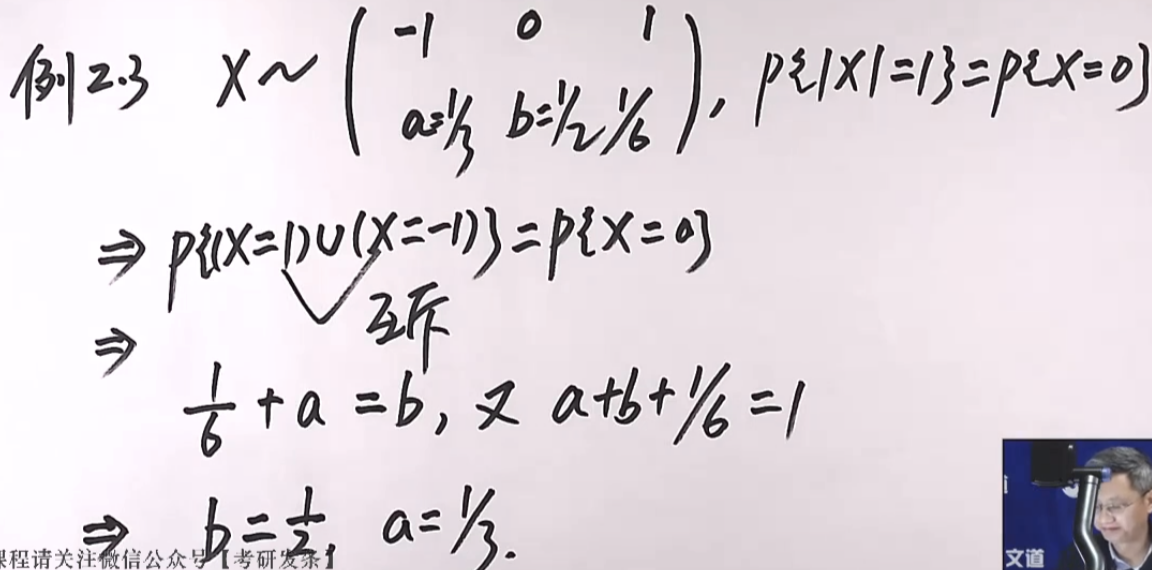 例2.3 X~ ( -1 0 1
a=1/3 b=1/2 1/6 ), P{|X|=1}=P{X=0}
⇒ P{(X=1)∪(X=-1)}=P{X=0}
互斥
⇒
1/6 + a = b, 又 a+b+1/6=1
⇒ b=1/2, a=1/3.
课程请关注微信公众号【考研发条】
文道